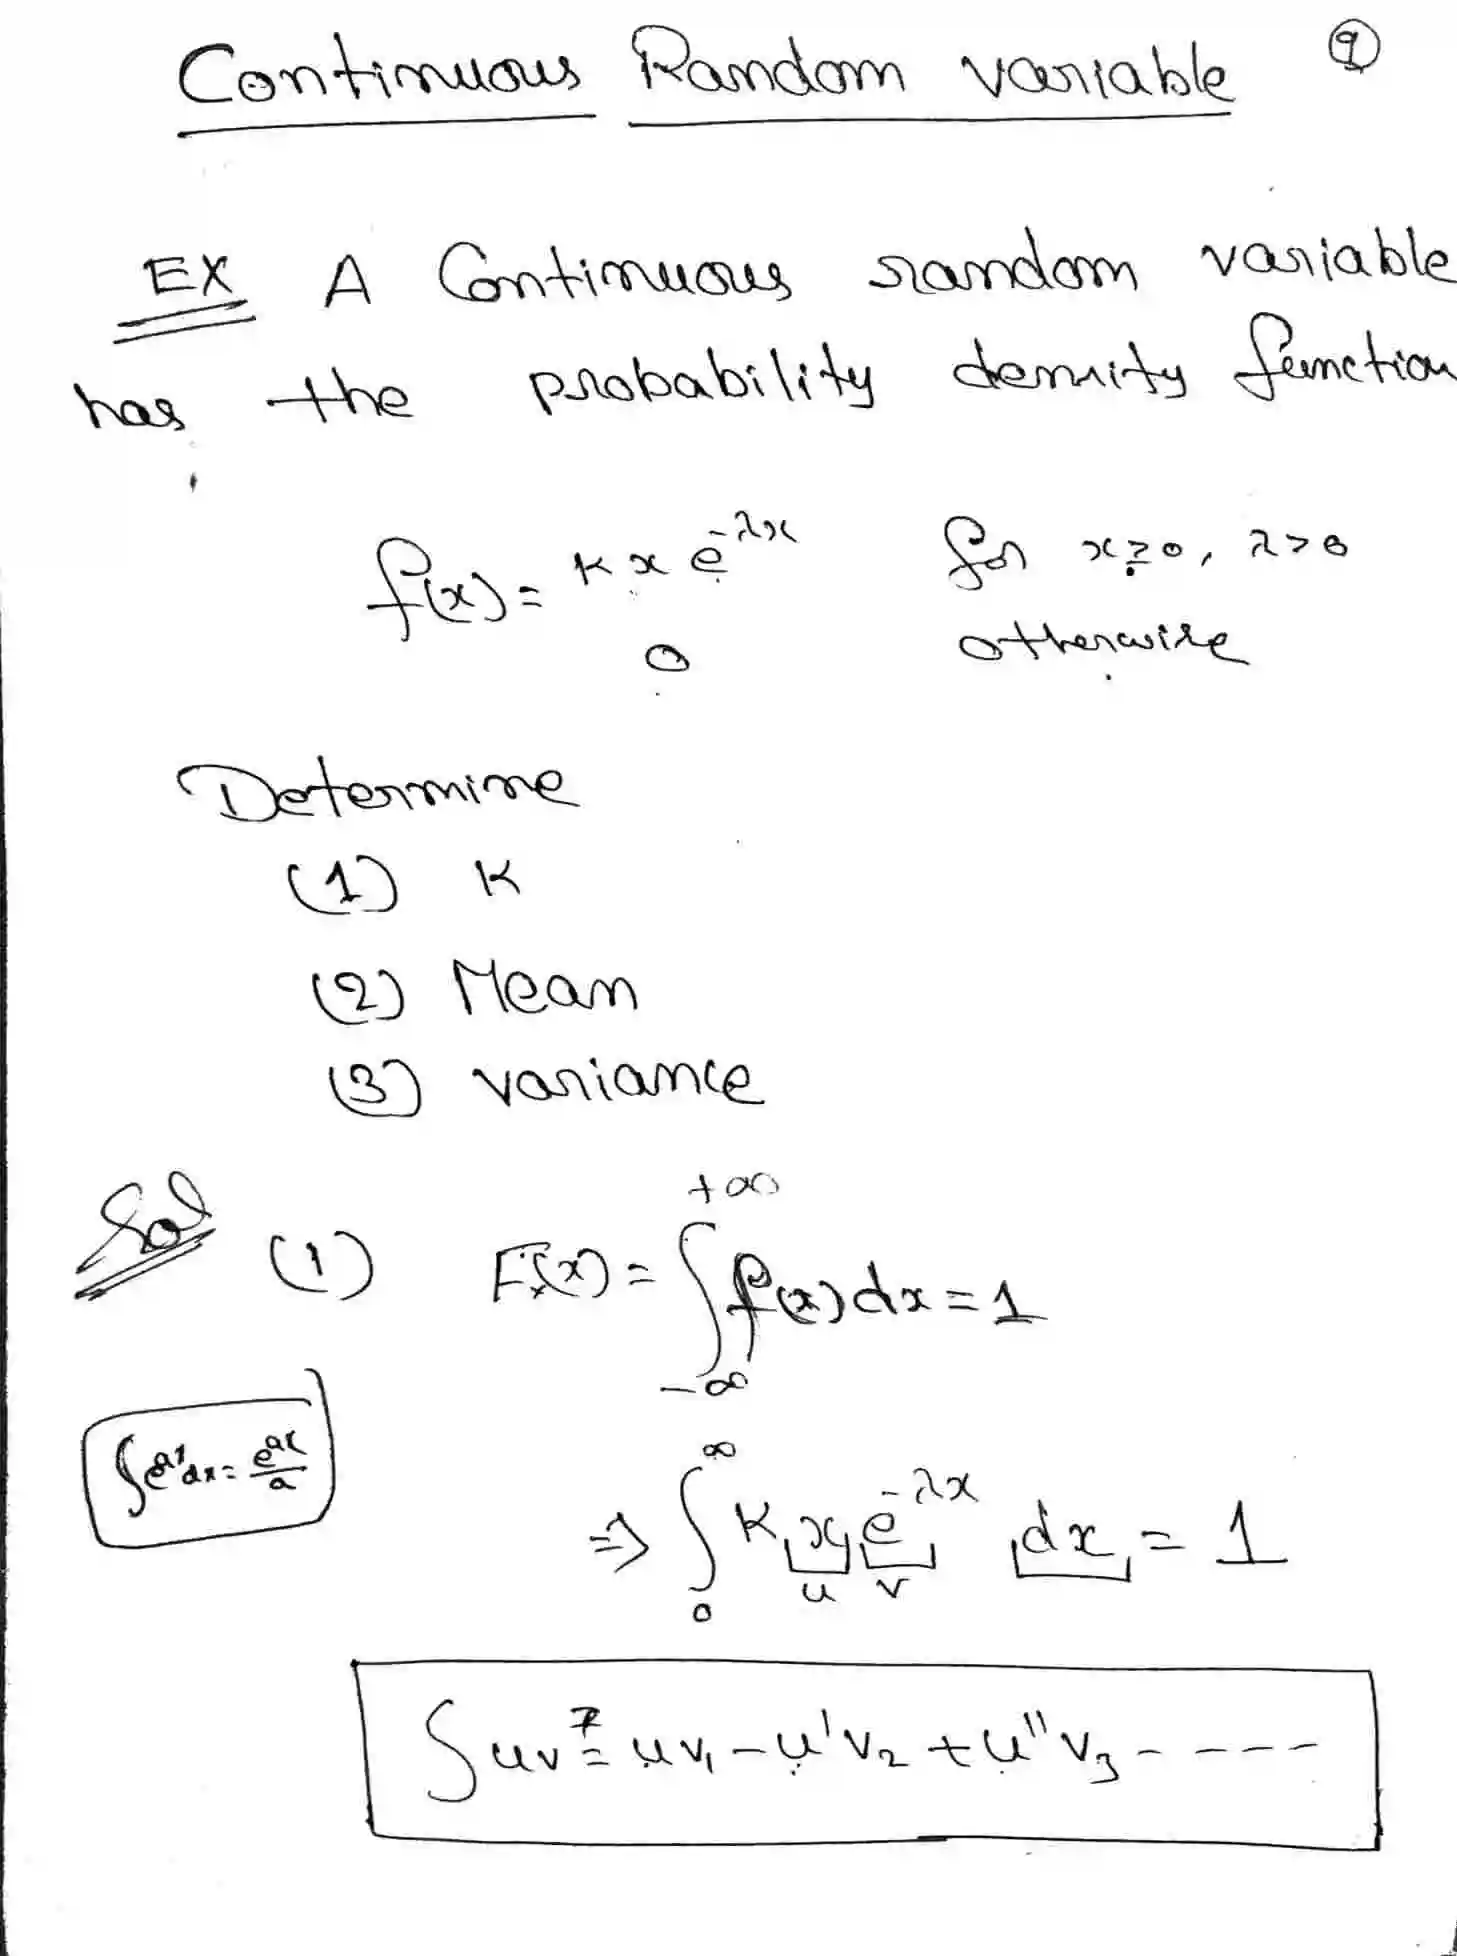 Continuous Random variable ①
EX A Continuous random variable
has the probability density function
f(x) = K x e^{-λx} for x ≥ 0, λ > 0
0 otherwise
Determine
(1) K
(2) Mean
(3) variance
Sol (1) Fₓ(x) = ∫_{-∞}^{+∞} f(x) dx = 1
∫e^{ax} dx = e^{ax}/a
⇒ ∫_0^∞ K x e^{-λx} dx = 1
u v
∫uv = uv₁ - u'v₂ + u''v₃ - - - - -